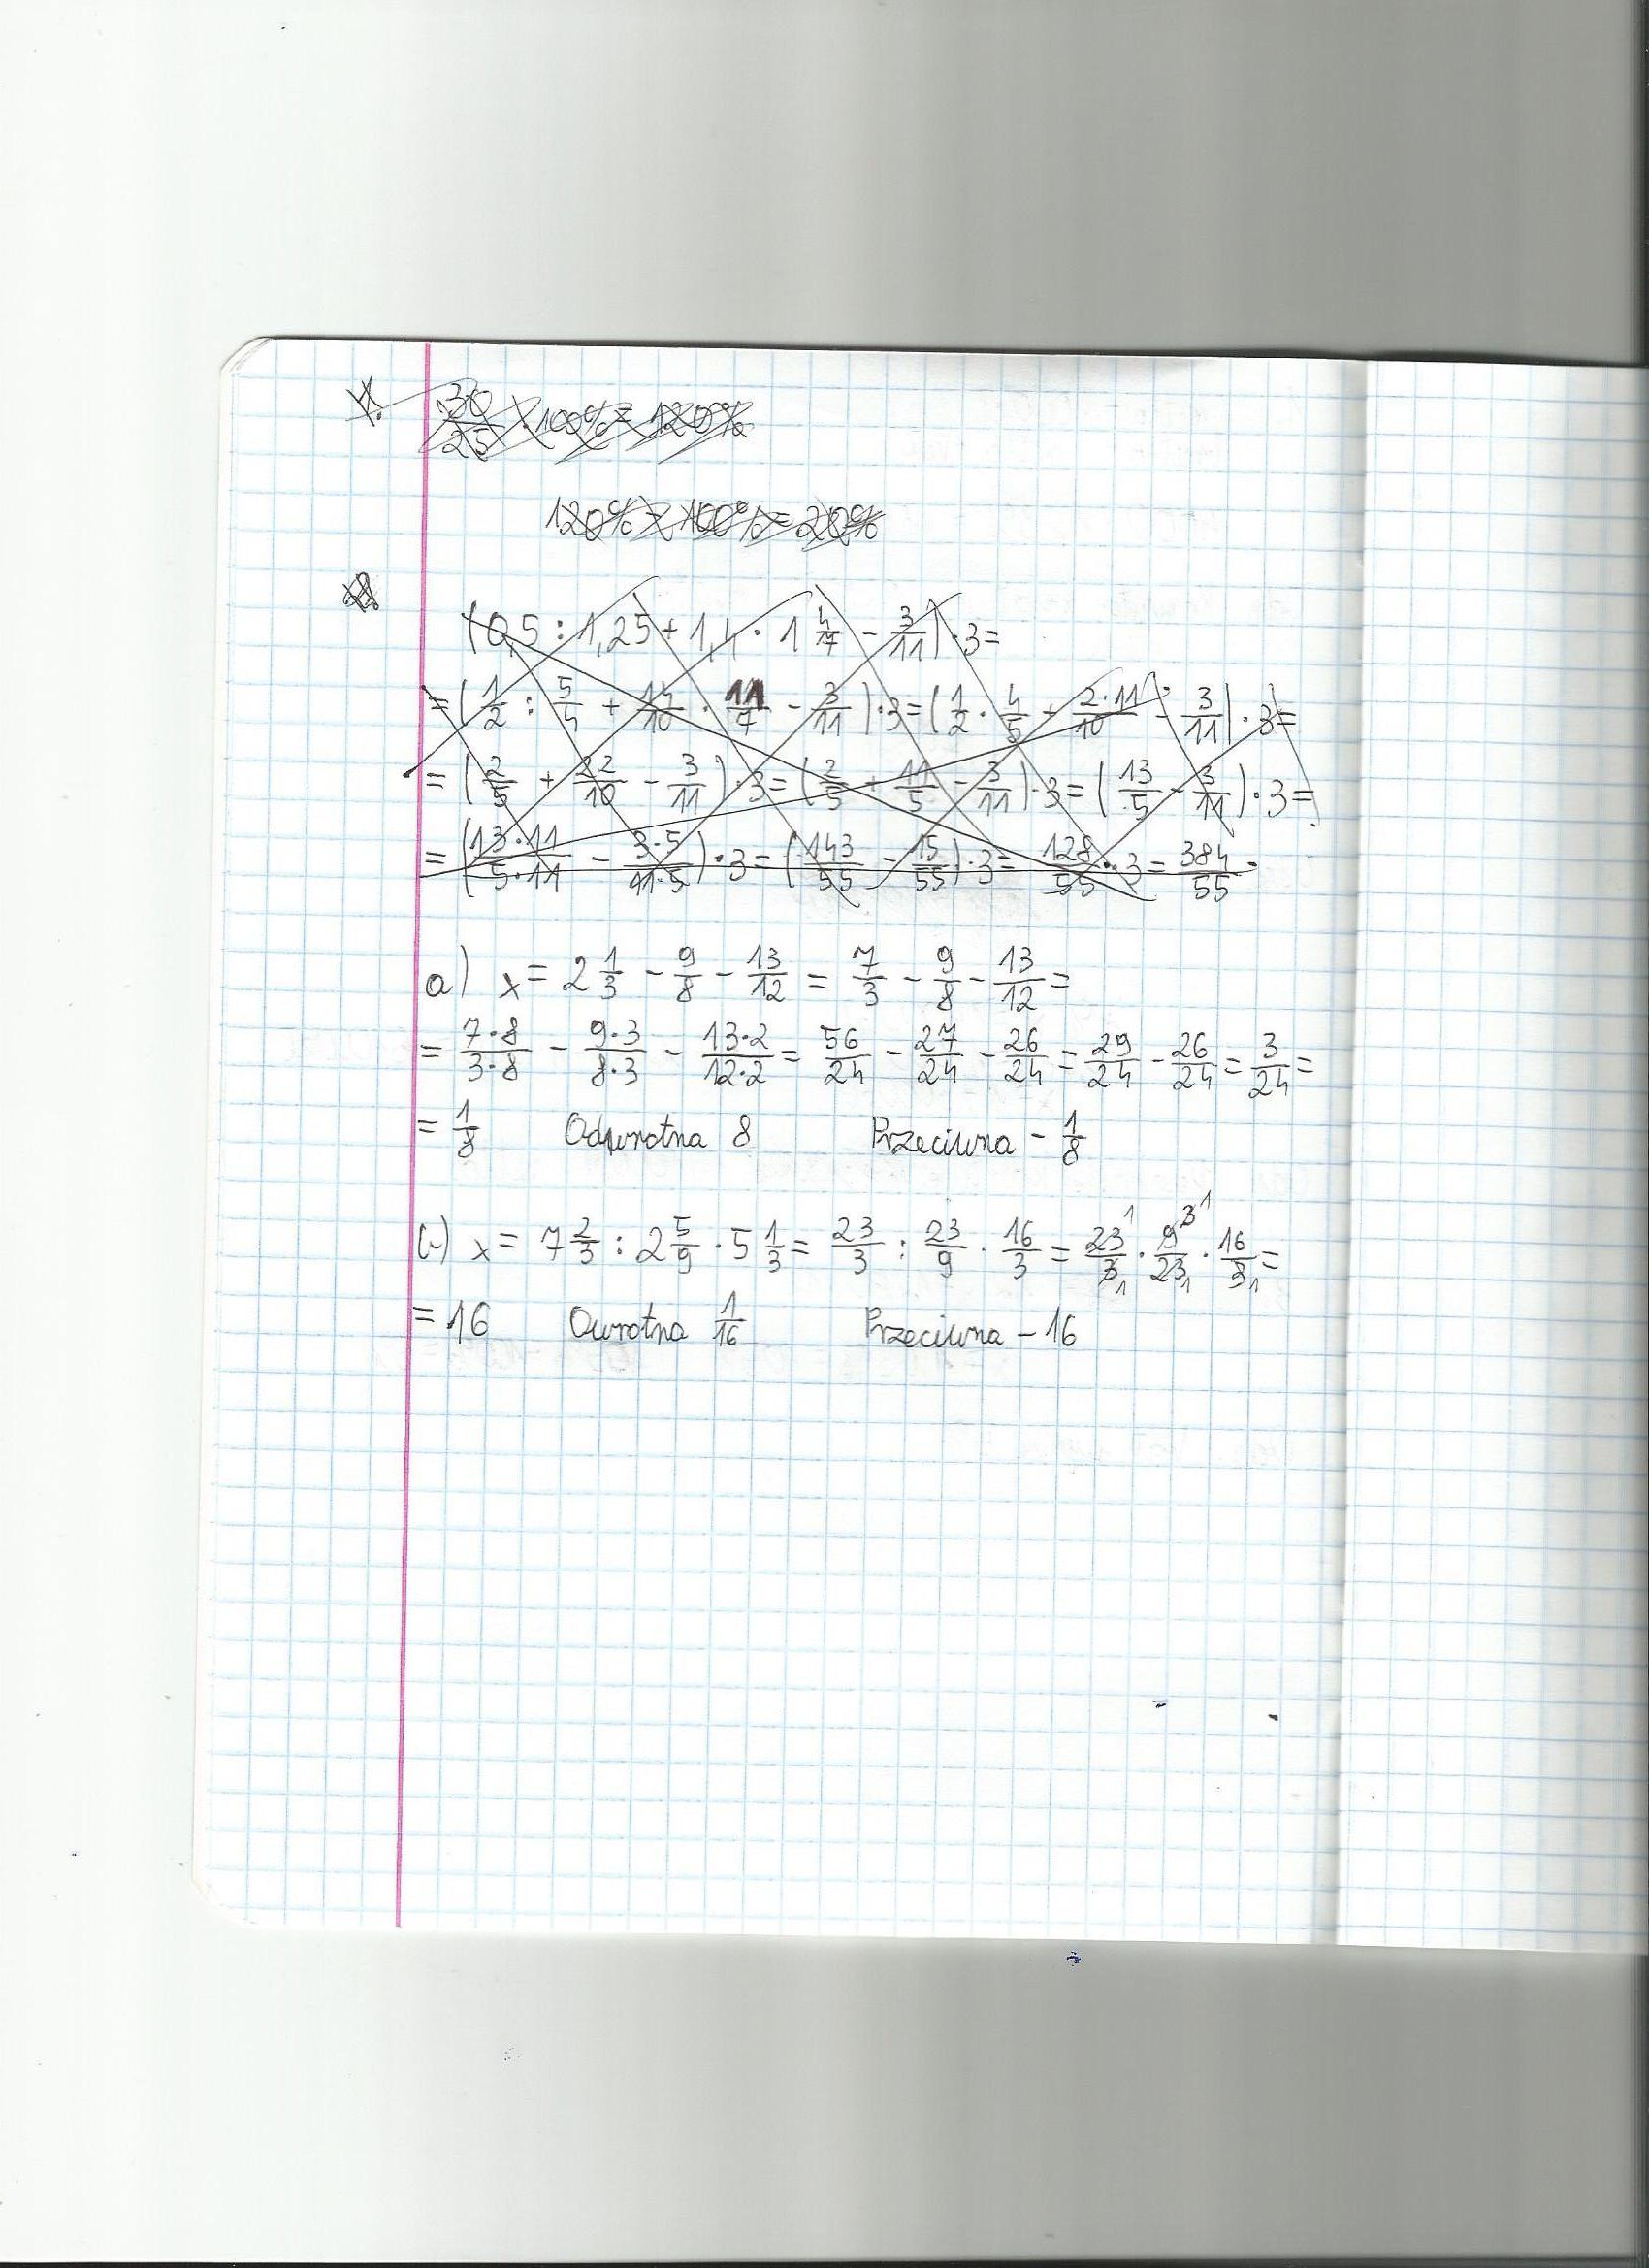 1. 30/25 · 100% = 120%
120% - 100% = 20%
2.
(0,5 : 1,25 + 1,4 · 1 4/7 - 3/11) · 3 =
= (1/2 : 5/4 + 14/10 · 11/7 - 3/11) · 3 = (1/2 · 4/5 + 2·11/10 - 3/11) · 3 =
= (2/5 + 22/10 - 3/11) · 3 = (2/5 + 11/5 - 3/11) · 3 = (13/5 - 3/11) · 3 =
= (13·11/5·11 - 3·5/11·5) · 3 = (143/55 - 15/55) · 3 = 128/55 · 3 = 384/55
a) x = 2 1/3 - 9/8 - 13/12 = 7/3 - 9/8 - 13/12 =
= 7·8/3·8 - 9·3/8·3 - 13·2/12·2 = 56/24 - 27/24 - 26/24 = 29/24 - 26/24 = 3/24 =
= 1/8 Odwrotna 8 Przeciwna - 1/8
c) x = 7 2/3 : 2 5/9 · 5 1/3 = 23/3 : 23/9 · 16/3 = 23/3 · 9/23 · 16/3 =
= 16 Owrotna 1/16 Przeciwna - 16